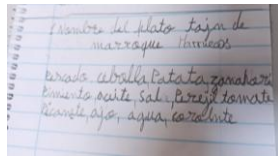 Nombre del plato tajn de
marroque
Pescado cebolla, Patata, zanahor
Pimiento, aceite, sal, Perejil tomate
Picante, ajo, agua,